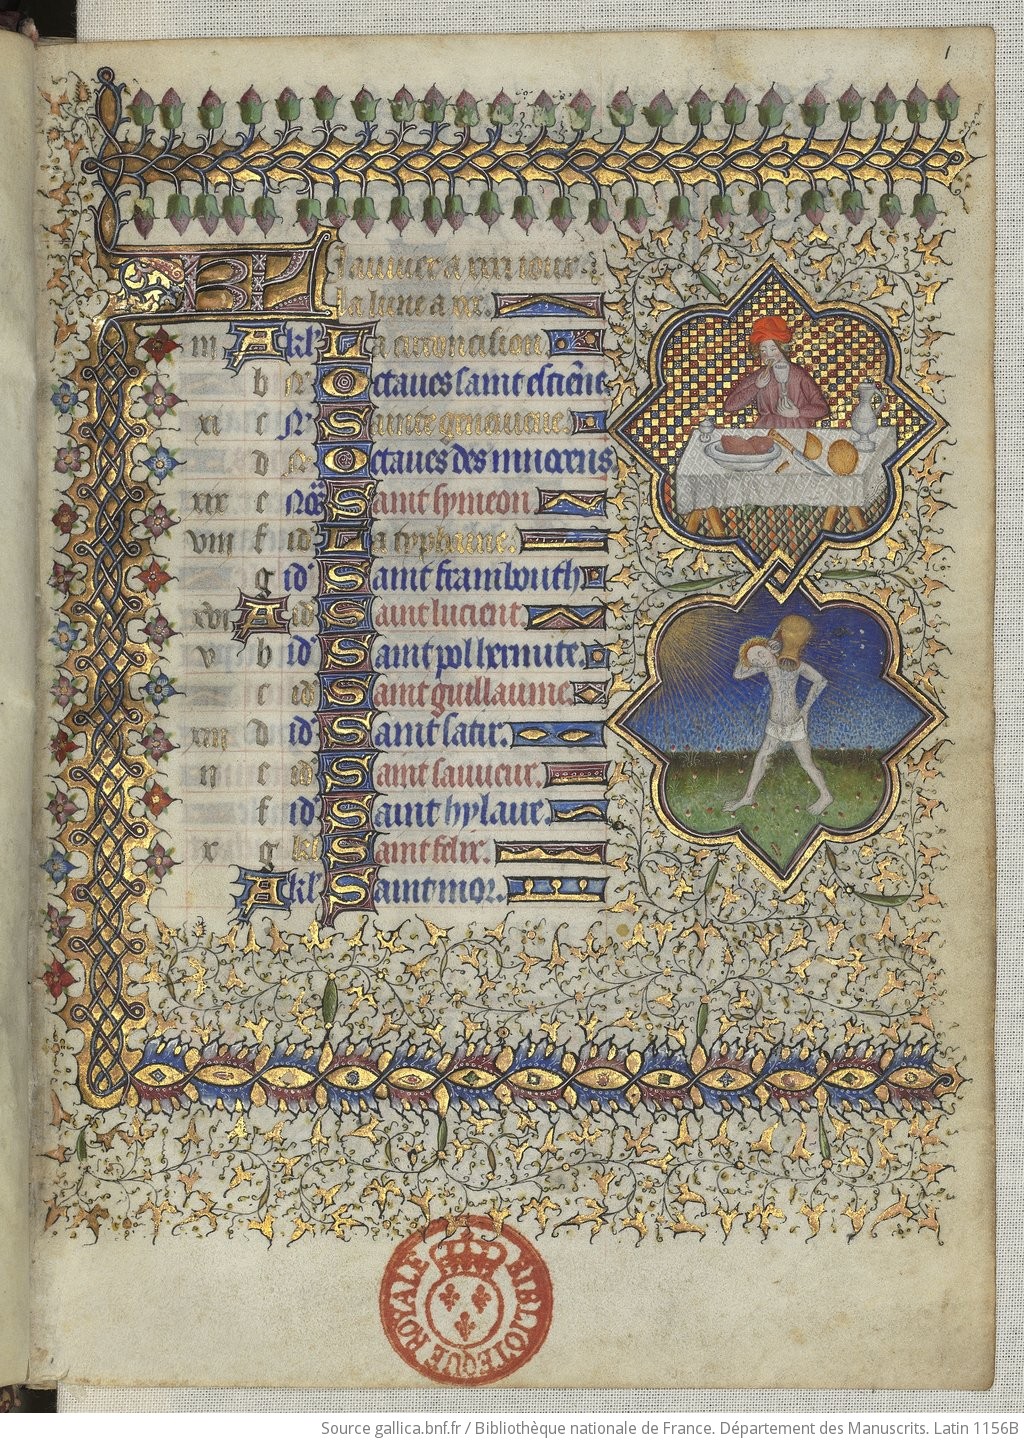 1
KL Januier a xxxi iour. z
la lune a xxx.
iii A kl' La circoncision.
b Octaues saint estiene
xi c Nr Sainte geneuieue.
d Octaues des innocens.
xix e Saint symeon.
viii f id La typhaine.
g id' Saint frambouth
xvi A id Saint lucient.
v b id' Saint pol hermite.
c id Saint guillaume.
xiii d id' Saint satir.
ii e id Saint sauueur.
f id' Saint hylaire.
x g kl Saint felix.
A kl' Saint mor.
BIBLIOTEQUE ROYALE
Source gallica.bnf.fr / Bibliothèque nationale de France. Département des Manuscrits. Latin 1156B